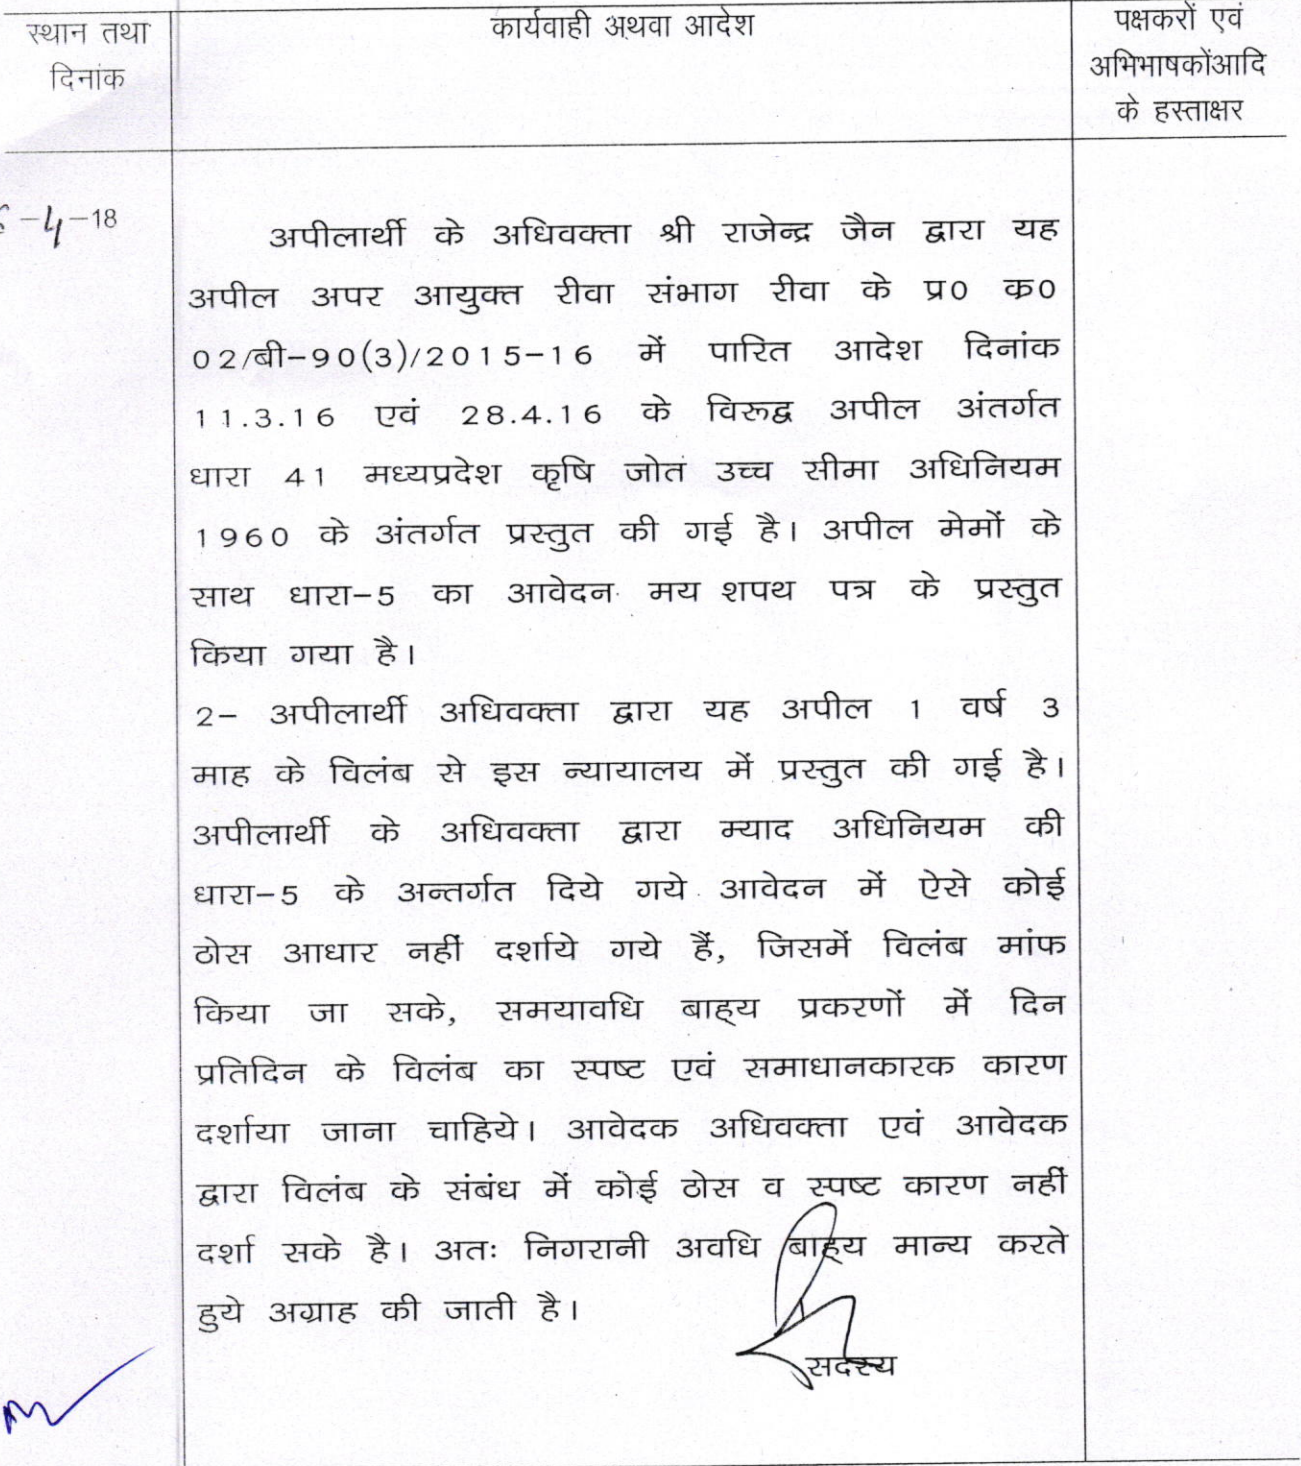 स्थान तथा
दिनांक
कार्यवाही अथवा आदेश
पक्षकरों एवं
अभिभाषकोंआदि
के हस्ताक्षर
-4-18
अपीलार्थी के अधिवक्ता श्री राजेन्द्र जैन द्वारा यह
अपील अपर आयुक्त रीवा संभाग रीवा के प्र0 क0
02/बी-90(3)/2015-16 में पारित आदेश दिनांक
11.3.16 एवं 28.4.16 के विरूद्व अपील अंतर्गत
धारा 41 मध्यप्रदेश कृषि जोत उच्च सीमा अधिनियम
1960 के अंतर्गत प्रस्तुत की गई है। अपील मेमों के
साथ धारा-5 का आवेदन मय शपथ पत्र के प्रस्तुत
किया गया है।
2- अपीलार्थी अधिवक्ता द्वारा यह अपील 1 वर्ष 3
माह के विलंब से इस न्यायालय में प्रस्तुत की गई है।
अपीलार्थी के अधिवक्ता द्वारा म्याद अधिनियम की
धारा-5 के अन्तर्गत दिये गये आवेदन में ऐसे कोई
ठोस आधार नहीं दर्शाये गये हैं, जिसमें विलंब मांफ
किया जा सके, समयावधि बाह्य प्रकरणों में दिन
प्रतिदिन के विलंब का स्पष्ट एवं समाधानकारक कारण
दर्शाया जाना चाहिये। आवेदक अधिवक्ता एवं आवेदक
द्वारा विलंब के संबंध में कोई ठोस व स्पष्ट कारण नहीं
दर्शा सके है। अतः निगरानी अवधि बाह्य मान्य करते
हुये अग्राह की जाती है।
सदस्य